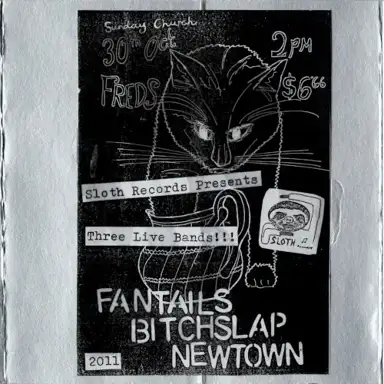 Sunday Church
30th Oct
2PM
FREDS
$6.66
Sloth Records Presents
Three Live Bands!!!
SLOTH
FANTAILS
BITCHSLAP
NEWTOWN
2011